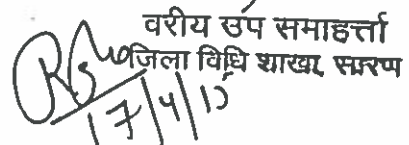 वरीय उप समाहर्त्ता
जिला विधि शाखा, सारण
17/4/15